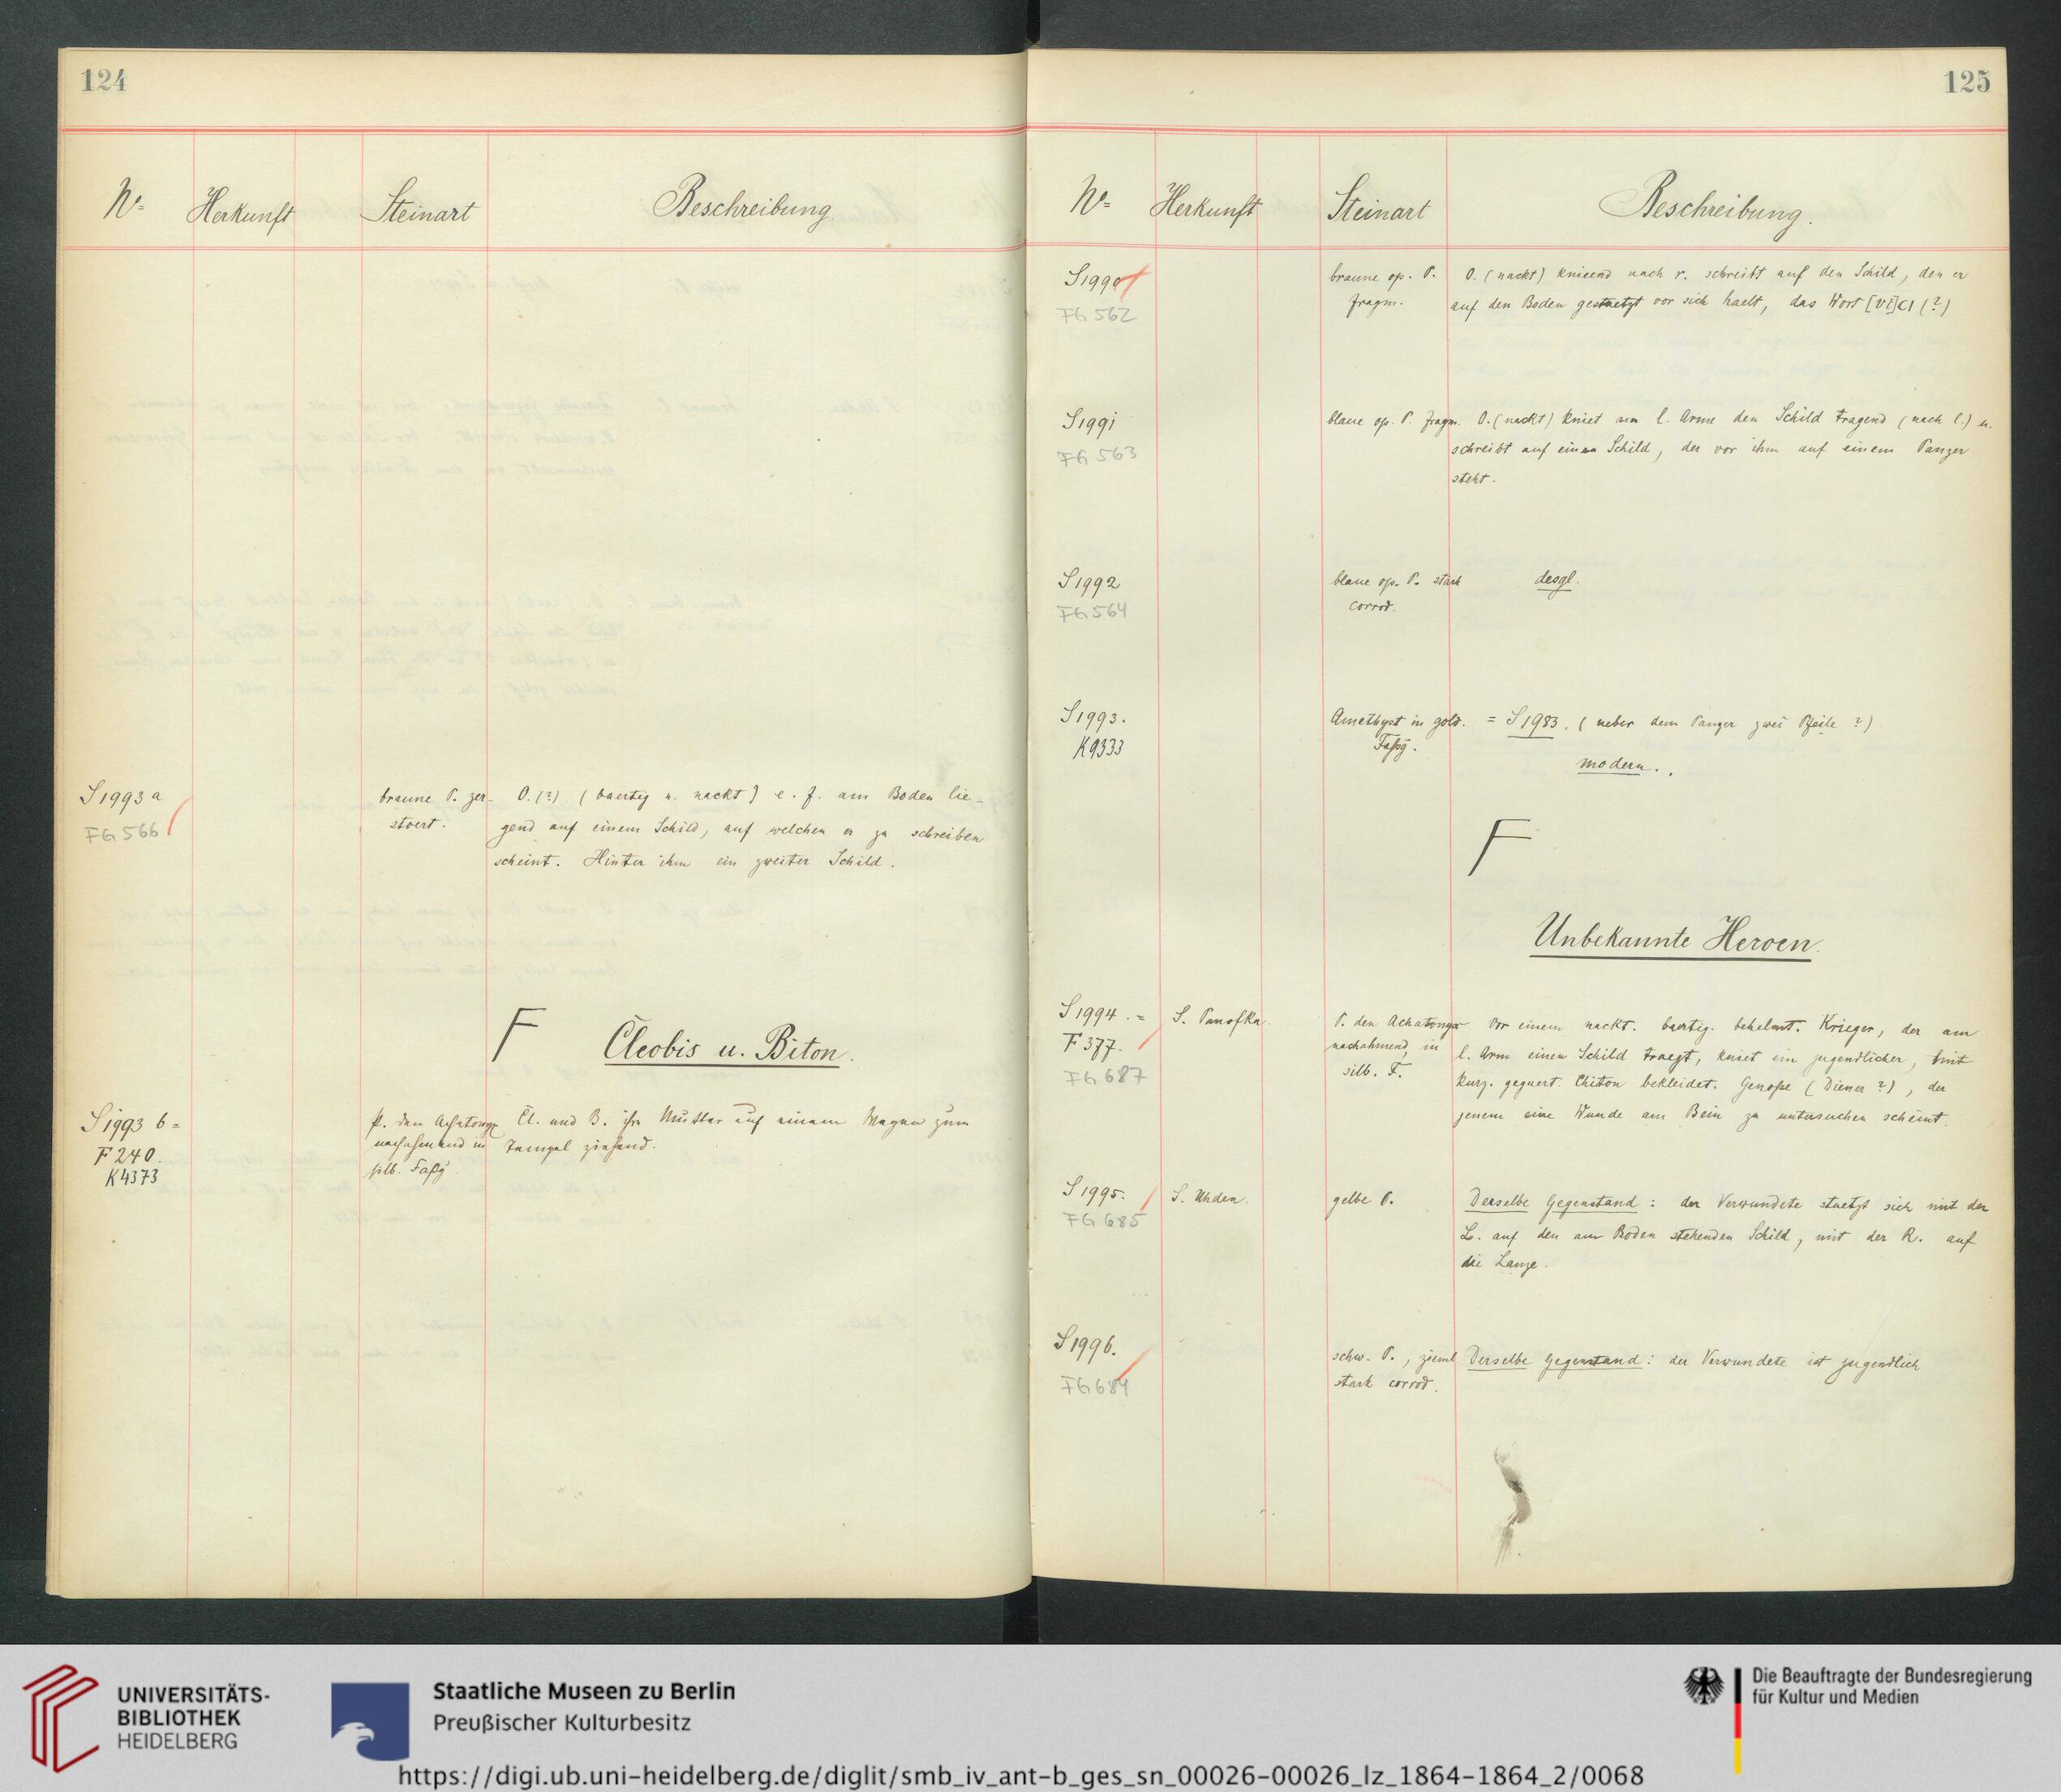 124
No Herkunft Steinart Beschreibung.
S1993a braune P. zer- O.(?) (baertig u. nackt) e. f. am Boden lie-
FG 566 stoert. gend auf einem Schild, auf welchen er zu schreiben
scheint. Hinter ihm ein zweiter Schild.
F Cleobis u. Biton.
S1993 b = P. den Achatonyx Cl. und B. ihre Mutter auf einem Wagen zum
F 240. nachahmend in Tempel ziehend.
K4373 silb. Faßg.
125
No Herkunft Steinart Beschreibung.
S1990 braune op. P. O. (nackt) knieend nach r. schreibt auf den Schild, den er
FG 562 fragm. auf den Boden gestuetzt vor sich haelt, das Wort [VI]CI (?)
S1991 blaue op. P. fragm. O. (nackt) kniet am l. Arme den Schild tragend (nach l.) u.
FG 563 schreibt auf einen Schild, der vor ihm auf einem Panzer
steht.
S1992 blaue op. P. stark desgl.
FG 564 corrod.
S1993. Amethyst in gold. = S1983. (ueber dem Panzer zwei Pfeile ?)
K9333 Faßg. modern.
F
Unbekannte Heroen.
S1994. = S. Panofka. P. den Achatonyx Vor einem nackt. baertig. behelmt. Krieger, der am
F 377. nachahmend, in l. Arm einen Schild traegt, kniet ein jugendlicher, mit
FG 687 silb. F. kurz. geguert. Chiton bekleidet. Genoße (Diener ?), der
jenem eine Wunde am Bein zu untersuchen scheint.
S1995. S. Uhden. gelbe P. Derselbe Gegenstand: der Verwundete stuetzt sich mit der
FG 685 L. auf den am Boden stehenden Schild, mit der R. auf
die Lanze.
S1996. schw. P., zieml. Derselbe Gegenstand: der Verwundete ist jugendlich
FG 684 stark corrod.
UNIVERSITÄTS-
BIBLIOTHEK
HEIDELBERG
Staatliche Museen zu Berlin
Preußischer Kulturbesitz
Die Beauftragte der Bundesregierung
für Kultur und Medien
https://digi.ub.uni-heidelberg.de/diglit/smb_iv_ant-b_ges_sn_00026-00026_lz_1864-1864_2/0068